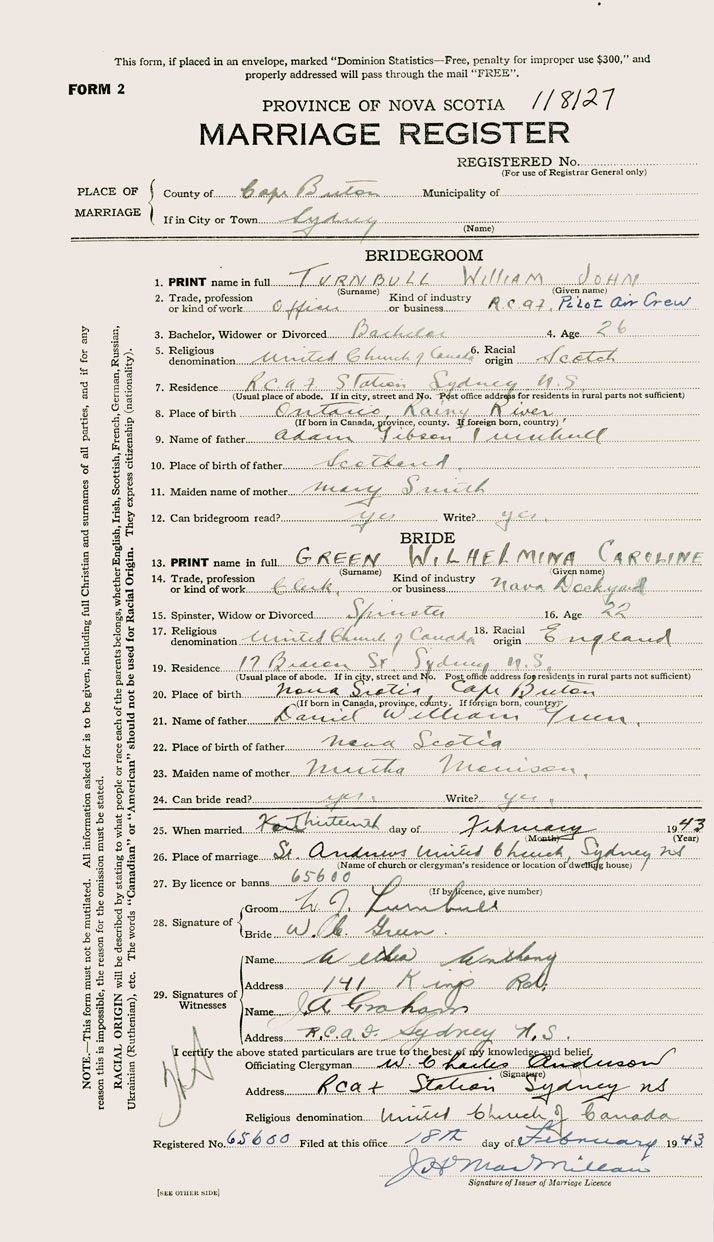 This form, if placed in an envelope, marked “Dominion Statistics—Free, penalty for improper use $300,” and
properly addressed will pass through the mail “FREE”.
FORM 2
PROVINCE OF NOVA SCOTIA 118127
MARRIAGE REGISTER
REGISTERED No.
(For use of Registrar General only)
PLACE OF MARRIAGE
County of Cape Breton Municipality of
If in City or Town Sydney
(Name)
BRIDEGROOM
1. PRINT name in full TURNBULL WILLIAM JOHN
(Surname) (Given name)
2. Trade, profession or kind of work Officer Kind of industry or business R.C.A.F. Pilot Air Crew
3. Bachelor, Widower or Divorced Bachelor 4. Age 26
5. Religious denomination United Church of Canada 6. Racial origin Scotch
7. Residence RCAF Station Sydney N.S.
(Usual place of abode. If in city, street and No. Post office address for residents in rural parts not sufficient)
8. Place of birth Ontario, Rainy River
(If born in Canada, province, county. If foreign born, country)
9. Name of father Adam Gibson Turnbull
10. Place of birth of father Scotland
11. Maiden name of mother Mary Smith
12. Can bridegroom read? yes Write? yes.
BRIDE
13. PRINT name in full GREEN WILHELMINA CAROLINE
(Surname) (Given name)
14. Trade, profession or kind of work Clerk, Kind of industry or business Nava Dockyard
15. Spinster, Widow or Divorced Spinster 16. Age 22
17. Religious denomination United Church of Canada 18. Racial origin England
19. Residence 17 St. Sydney N.S.
(Usual place of abode. If in city, street and No. Post office address for residents in rural parts not sufficient)
20. Place of birth Nova Scotia, Cape Breton
(If born in Canada, province, county. If foreign born, country)
21. Name of father Daniel William Green,
22. Place of birth of father Nova Scotia
23. Maiden name of mother Morrison,
24. Can bride read? yes. Write? yes,
25. When married Thirteenth day of February 1943
(Month) (Year)
26. Place of marriage St. Andrews United Church, Sydney NS
(Name of church or clergyman's residence or location of dwelling house)
27. By licence or banns 65600
(If by licence, give number)
28. Signature of
Groom W. J. Turnbull
Bride W. C. Green.
29. Signatures of Witnesses
Name Anthony
Address 141 Kings Rd.
Name J A Graham
Address R.C.A.F. Sydney N.S.
I certify the above stated particulars are true to the best of my knowledge and belief.
Officiating Clergyman W. Charles Anderson
(Signature)
Address RCAF Station Sydney NS
Religious denomination United Church of Canada
Registered No. 65600 Filed at this office 18th day of February 1943
MacMillan
Signature of Issuer of Marriage Licence
[SEE OTHER SIDE]
NOTE.—This form must not be mutilated. All information asked for is to be given, including full Christian and surnames of all parties, and if for any
reason this is impossible, the reason for the omission must be stated.
RACIAL ORIGIN will be described by stating to what people or race each of the parents belongs, whether English, Irish, Scottish, French, German, Russian,
Ukrainian (Ruthenian), etc. The words “Canadian” or “American” should not be used for Racial Origin. They express citizenship (nationality).